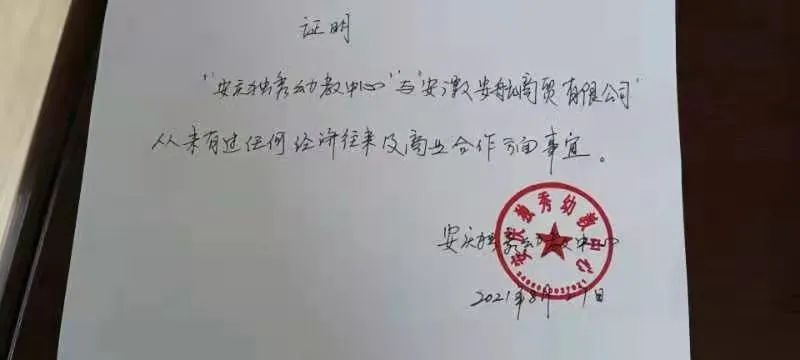 证明
"安庆独秀幼教中心"与"安徽安航商贸有限公司"
从来有过任何经济往来及商业合作方面事宜。
安庆独秀幼教中心
安庆独秀幼教中心
2021年8月27日